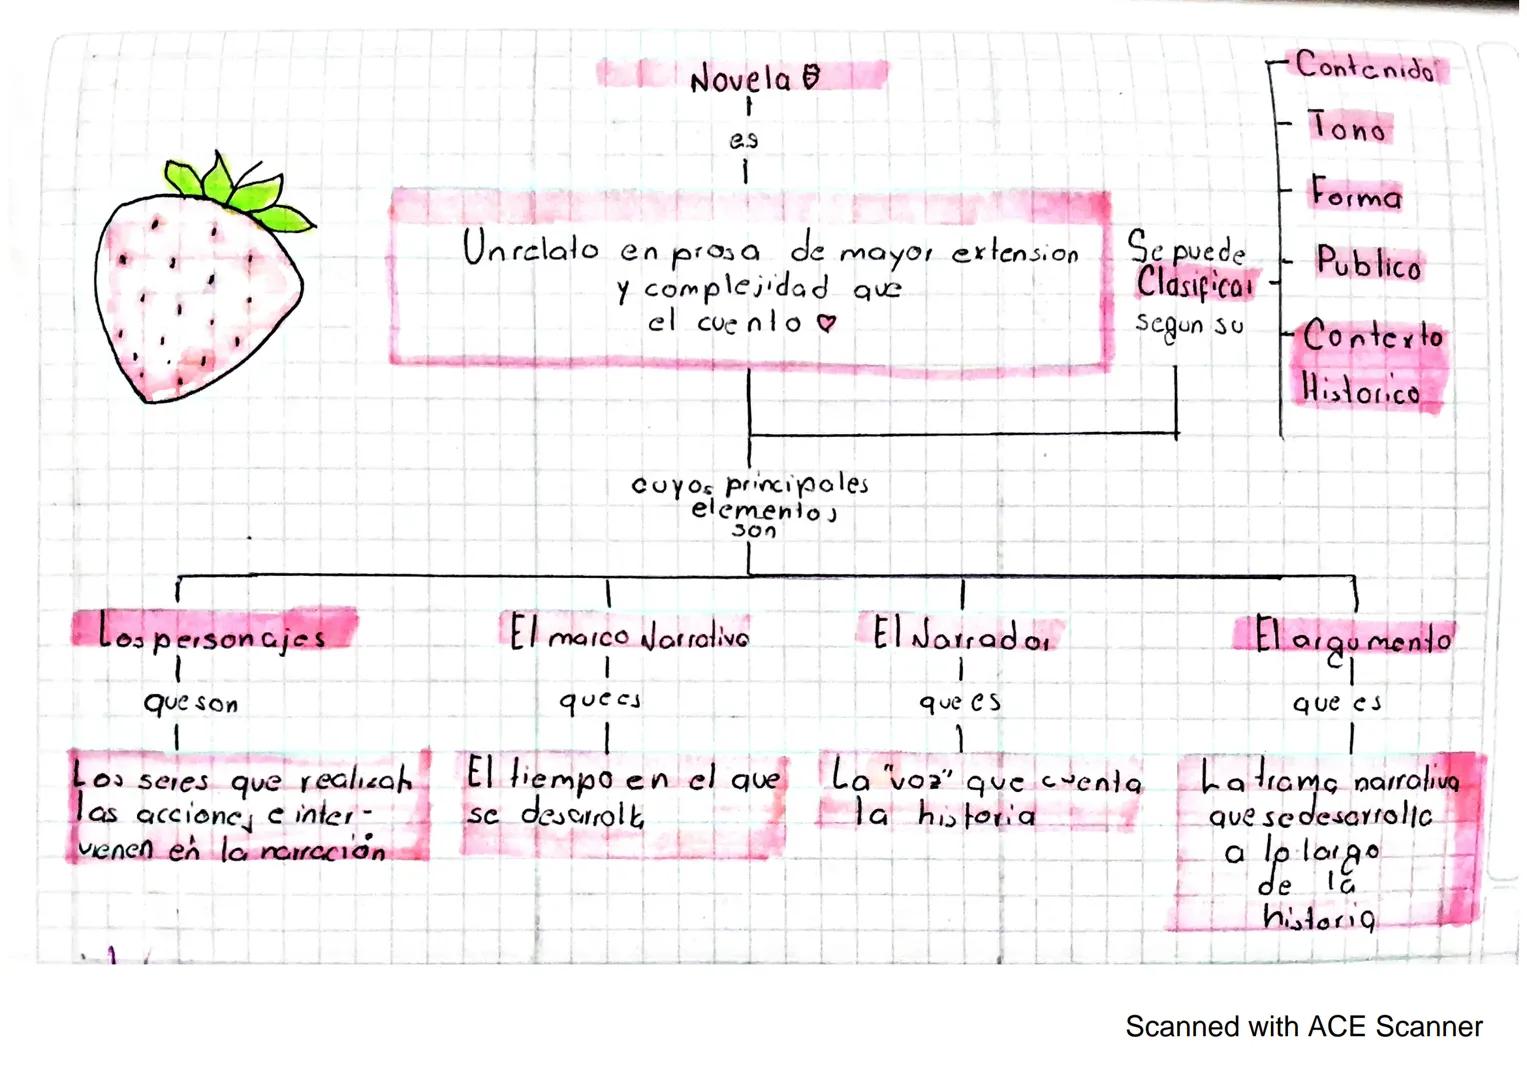 Novela
es
Un relato en prosa de mayor extension
y complejidad que
el cuento
Se puede
Clasificar
segun su
Contenido
Tono
Forma
Publico
Contexto
Historico
cuyos principales
elementos
son
Los personajes
que son
Los seres que realizan
las acciones e inter-
vienen en la narración
El marco Narrativo
que es
El tiempo en el que
se desarrolla
El Narrador
que es
La "voz" que cuenta
la historia
El argumento
que es
La trama narrativa
que se desarrolla
a lo largo
de la
historia
Scanned with ACE Scanner